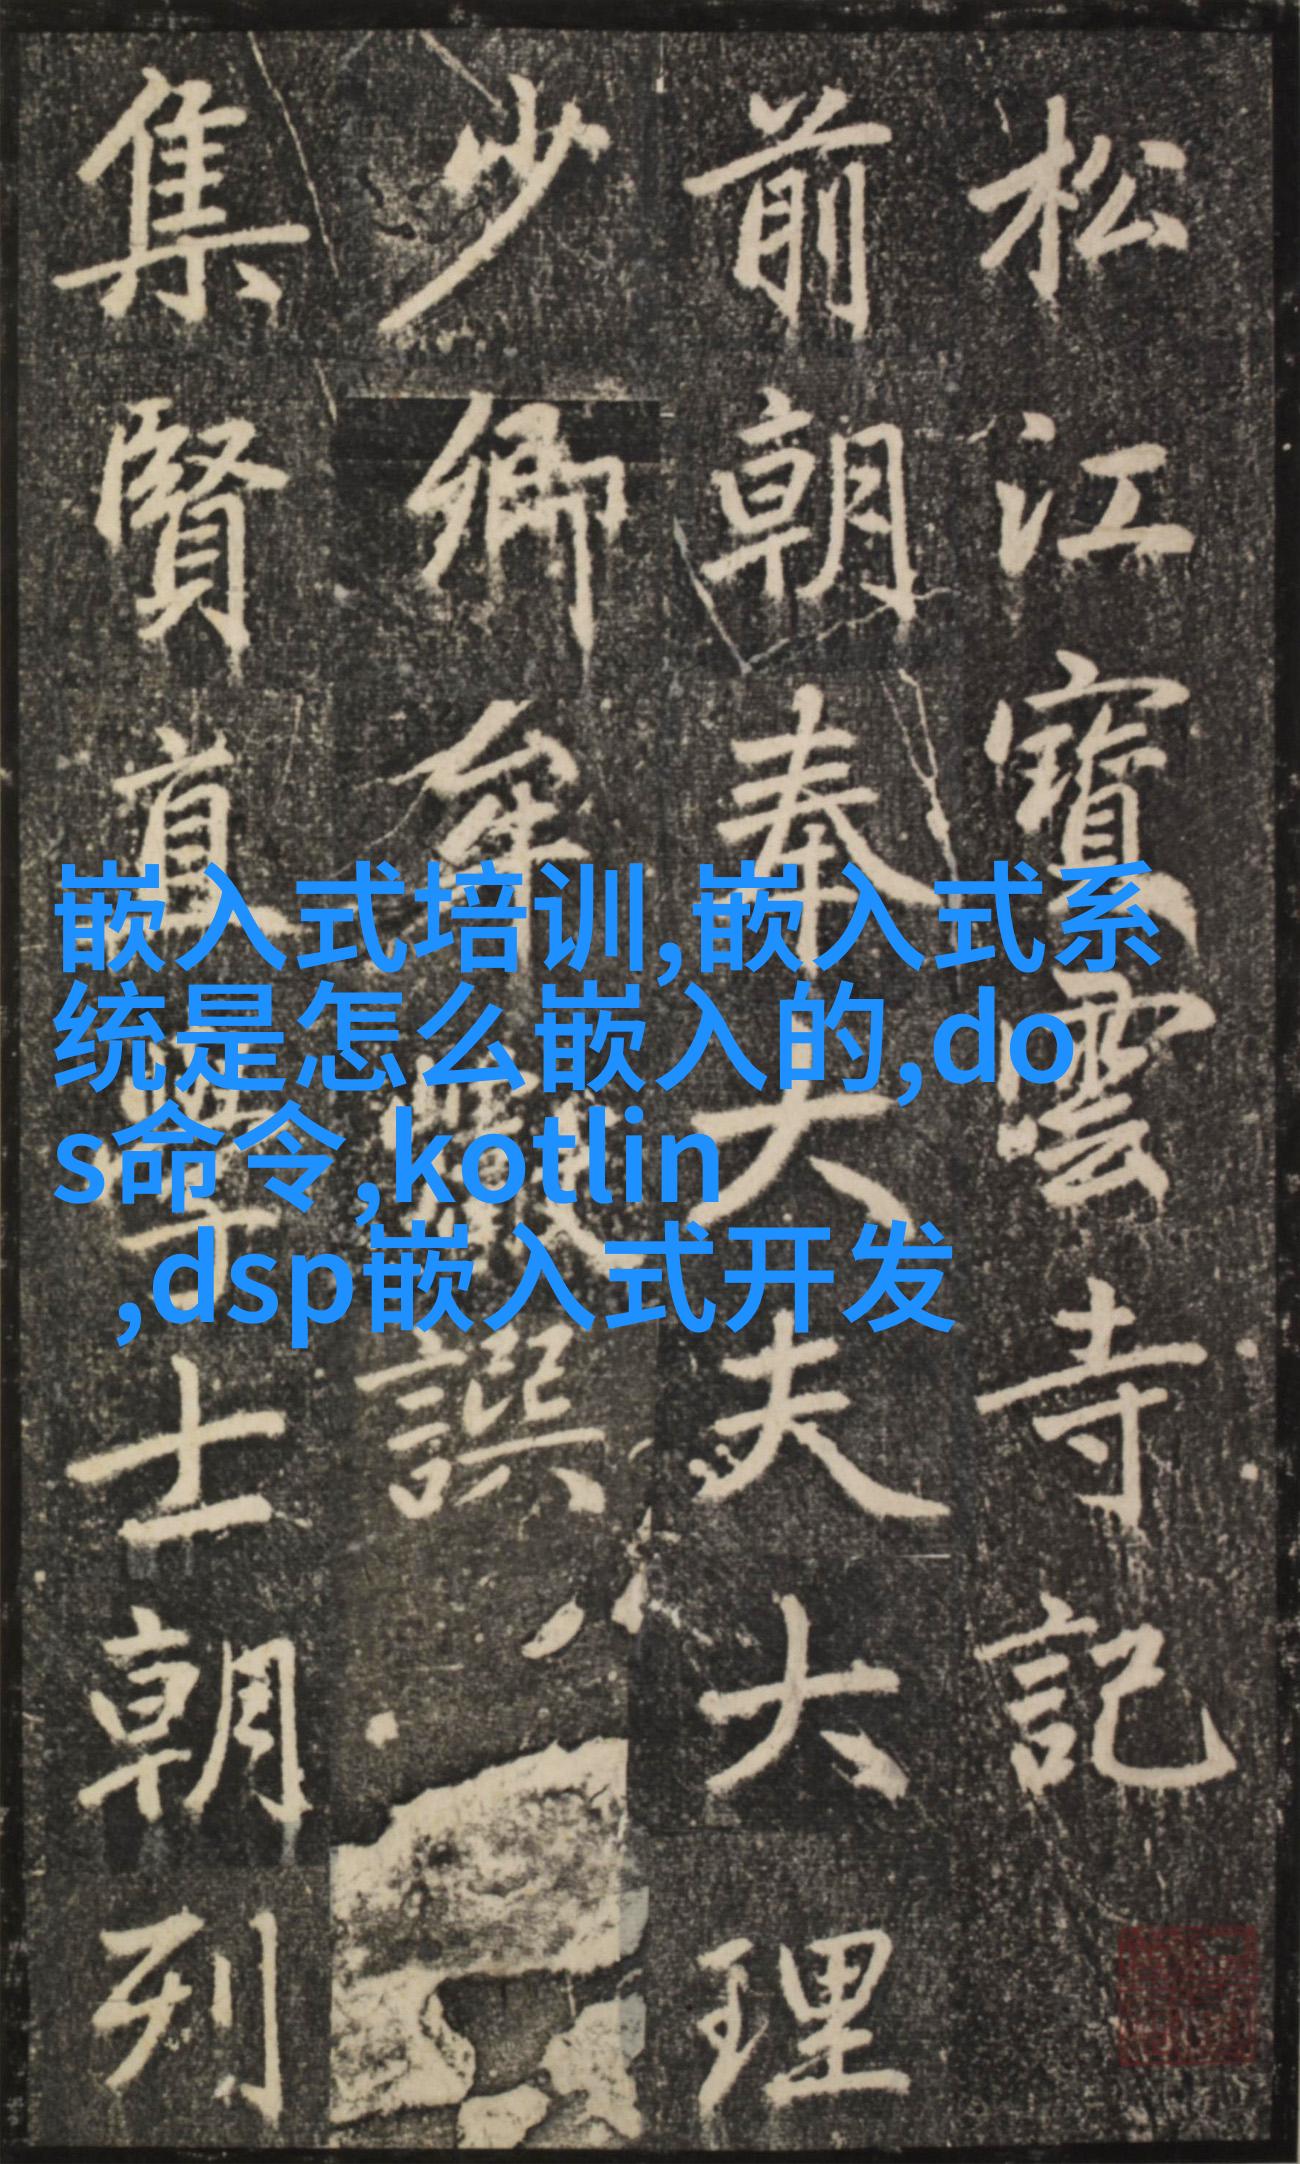 松江寶雲寺記
前朝奉大夫大理
少卿牟巘譔
集賢直學士朝列
嵌入式培训,嵌入式系
统是怎么嵌入的,do
s命令,kotlin
,dsp嵌入式开发